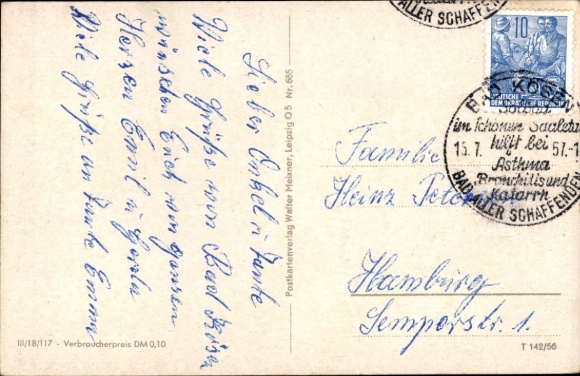 Lieber Onkel u. Tante
Viele Grüße von Bad Kösen
wünschen Euch von ganzen
Herzen Emil u. Gerda
Viele Grüße an Tante Emma
III/18/117 - Verbraucherpreis DM 0,10
Postkartenverlag Walter Meixner, Leipzig O 5 Nr. 665
BAD ALLER SCHAFFENDEN
10
DEUTSCHE
DEMOKRATISCHE REPUBLIK
BAD KÖSEN
im schönen Saaletal
hilft bei
15.7. 57.-1
Asthma
Bronchitis und
Katarrh
BAD ALLER SCHAFFENDEN
Familie
Heinz
Hamburg
Semperstr. 1
T 142/56